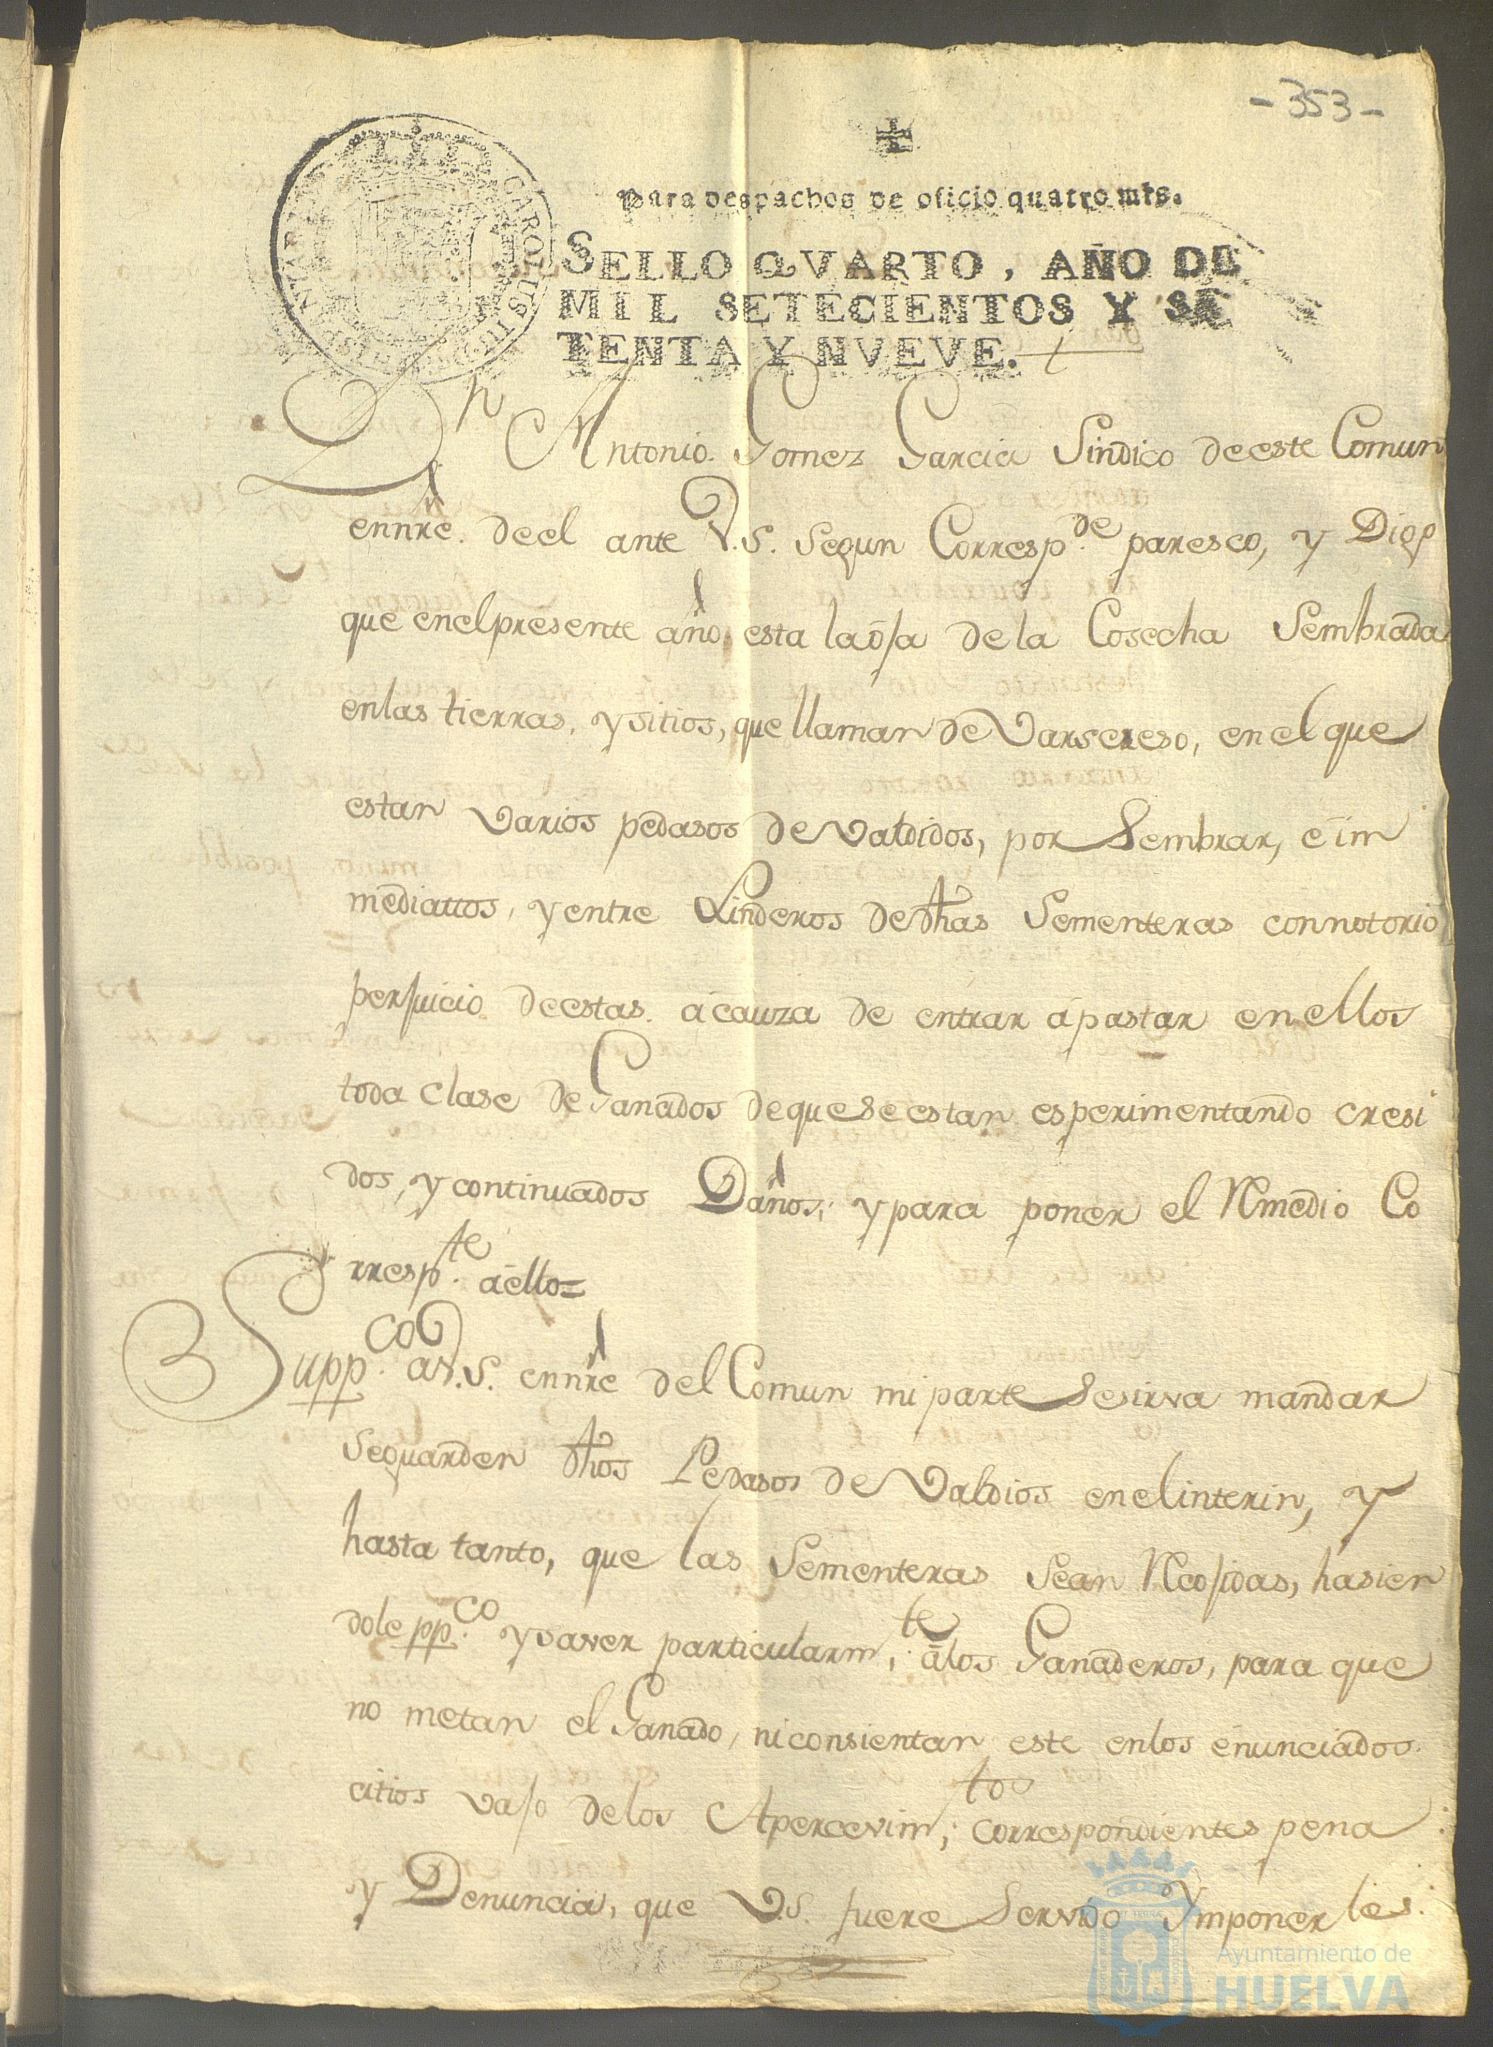 -353-
Para despachos de oficio quatro mrs.
SELLO QVARTO, AÑO DE
MIL SETECIENTOS Y SE
TENTA Y NVEVE.
CAROLUS III
Dn Antonio Gomez Garcia Sindico de este Comun
ennre. de el ante V.S. segun Corresp.de paresco, y Digo
que en el presente año esta la oja de la Cosecha Sembrada
en las tierras, y sitios, que llaman de Varsereso, en el que
estan varios pedasos de Valdidos, por Sembrar, e im
mediattos, y entre Linderos de dhas Sementeras con notorio
perjuicio de estas. a cauza de entrar a pastar en ellos
toda clase de Ganados de que se estan esperimentando cresi
dos, y continuados Daños; y para poner el Rmedio Co
rresp.te a ello=
Supp.co a V.S. ennre del Comun mi parte Se sirva mandar
se guarden dhos Pedasos de Valdios en el interin, y
hasta tanto, que las Sementeras Sean Rcojidas, hasien
dole pp.co y saver particularm.te a los Ganaderos, para que
no metan el Ganado, ni consientan este en los enunciados
citios vajo de los Apercevim.tos correspondientes pena
y Denuncia, que V.S. fuere Servido Ymponerles.
Ayuntamiento de
HUELVA